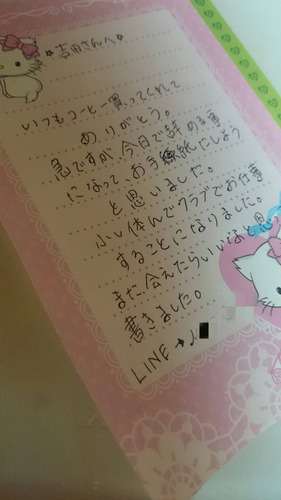 ☆吉田さんへ☆
いつもコーヒー買ってくれて
ありがとう。
急ですが、今日で辞める事
になって、お手紙にしよう
と思いました。
少し休んでクラブでお仕事
することになりました。
また、会えたらいいなと思
書きました。
LINE→♪